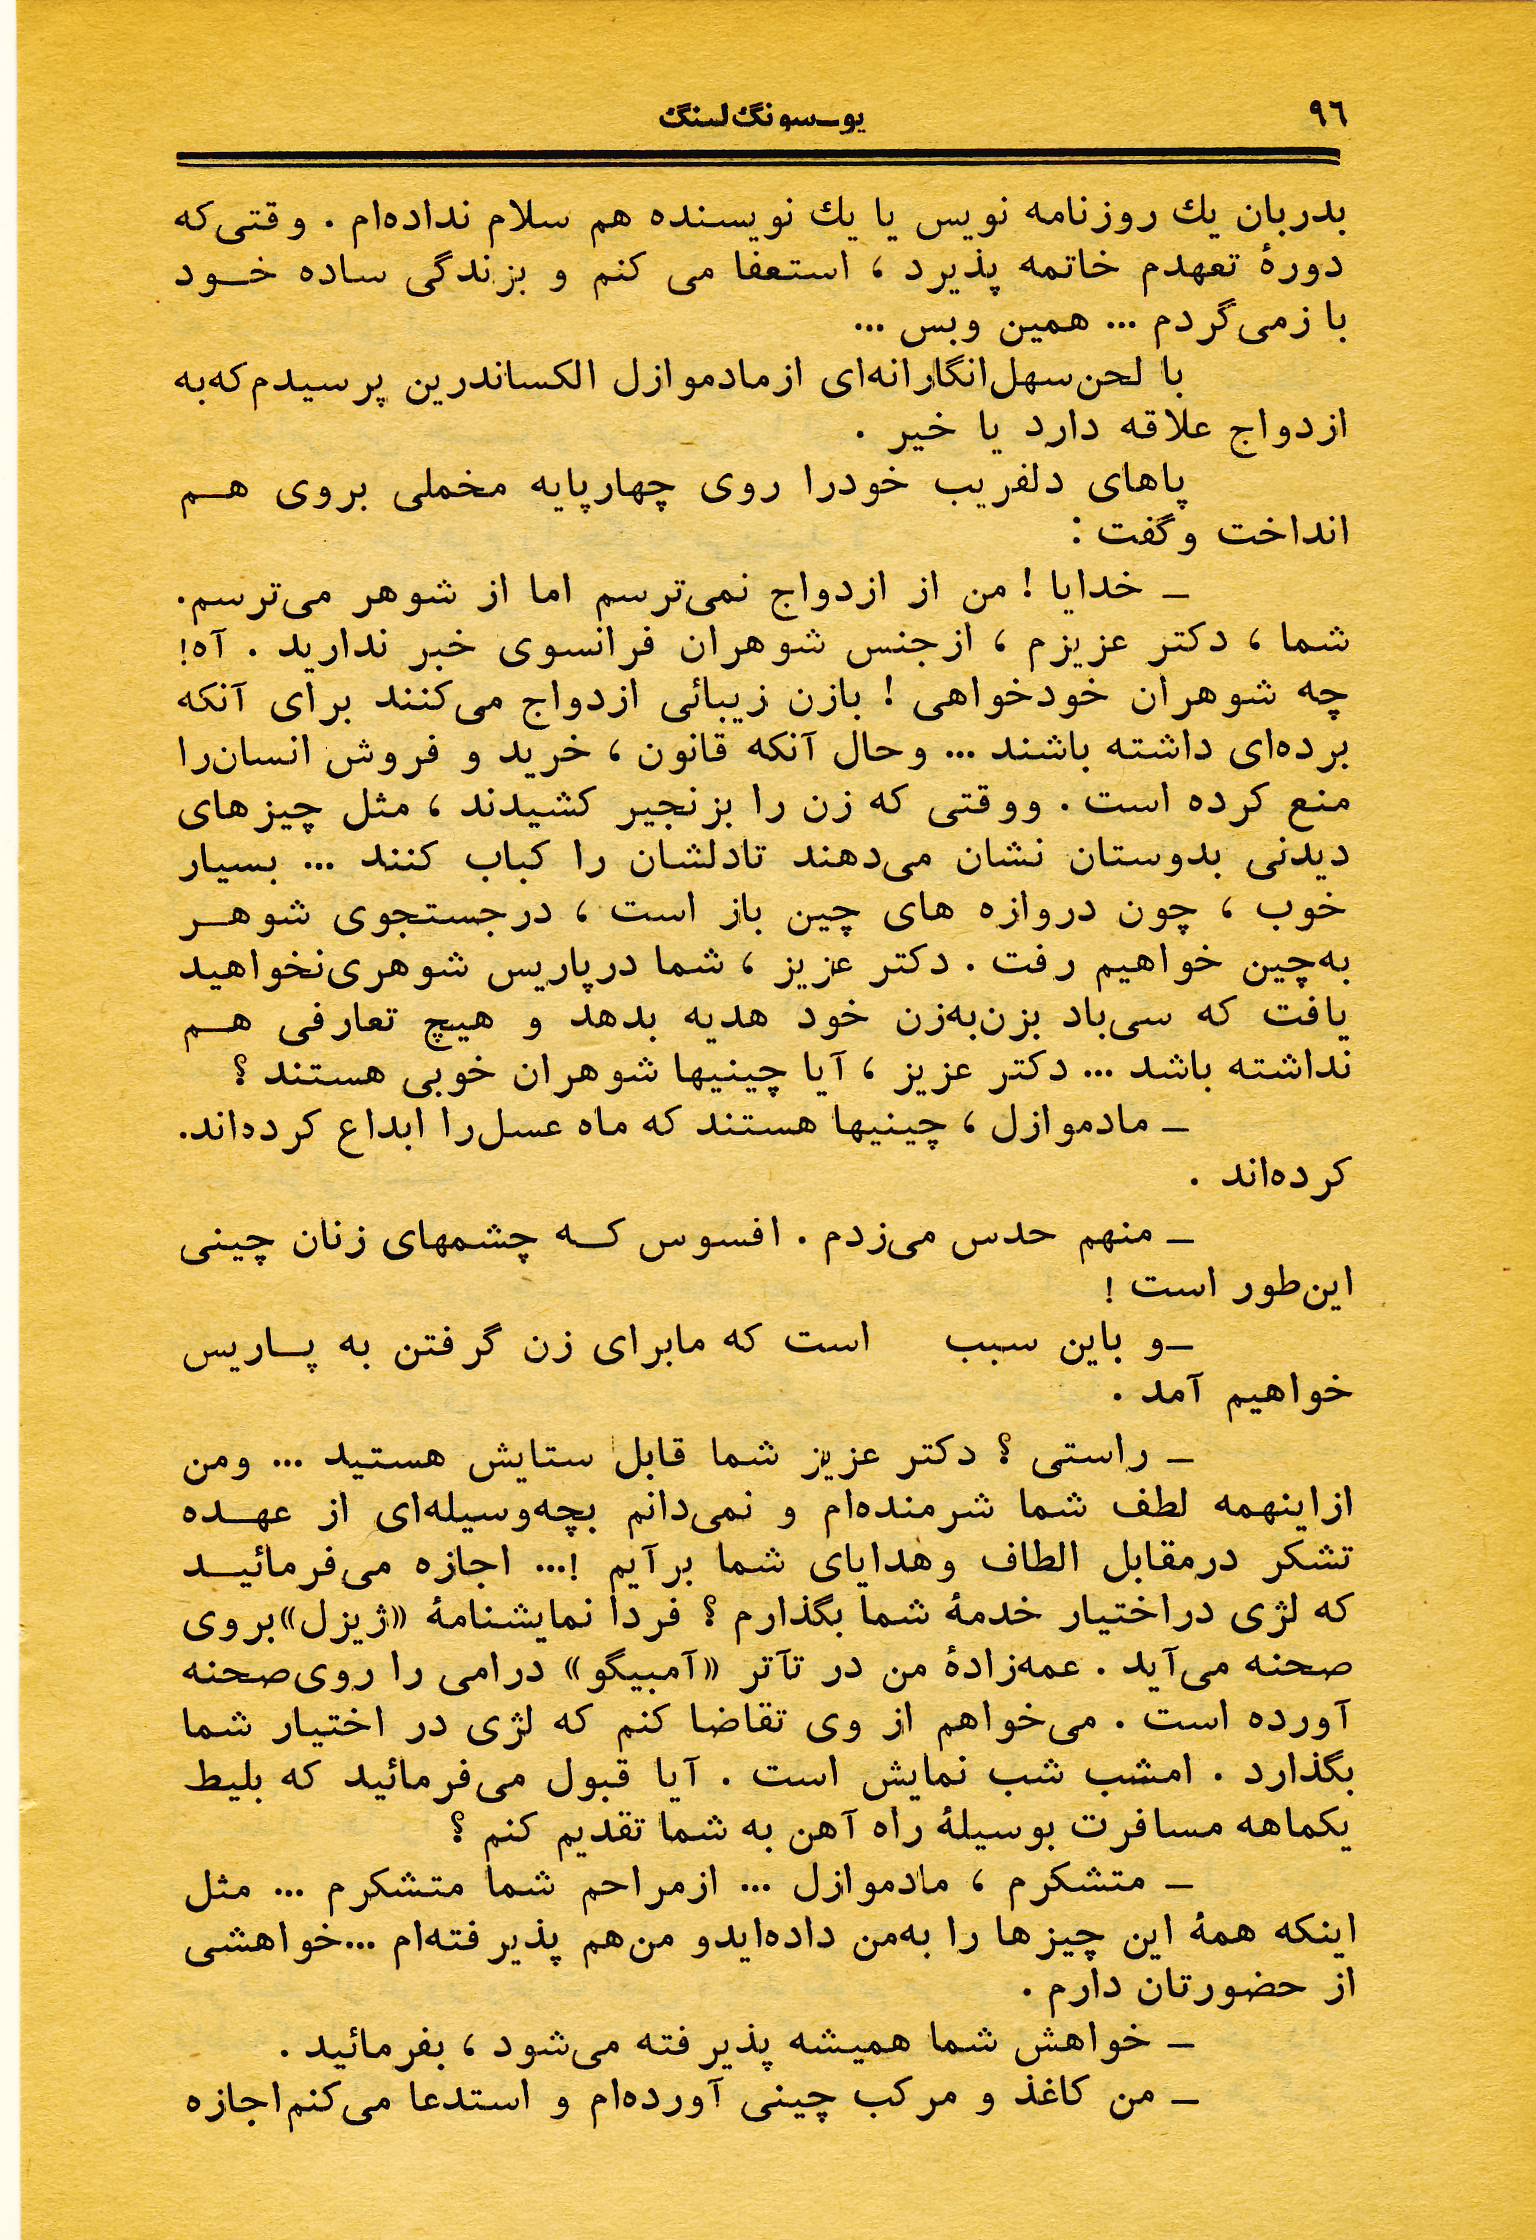 ۹٦
یو-سونگ‌لنگ
بدربان یك روزنامه نویس یا یك نویسنده هم سلام نداده‌ام . وقتی‌که
دورهٔ تعهدم خاتمه پذیرد ، استعفا می کنم و بزندگی ساده خود
بازمی‌گردم ... همین وبس ...
با لحن‌سهل‌انگارانه‌ای ازمادموازل الکساندرین پرسیدم‌که‌به
ازدواج علاقه دارد یا خیر .
پاهای دلفریب خودرا روی چهارپایه مخملی بروی هم
انداخت وگفت :
ــ خدایا ! من از ازدواج نمی‌ترسم اما از شوهر می‌ترسم.
شما ، دکتر عزیزم ، ازجنس شوهران فرانسوی خبر ندارید . آه!
چه شوهران خودخواهی ! بازن زیبائی ازدواج می‌کنند برای آنکه
برده‌ای داشته باشند ... وحال آنکه قانون ، خرید و فروش انسان‌را
منع کرده است . ووقتی که زن را بزنجیر کشیدند ، مثل چیزهای
دیدنی بدوستان نشان می‌دهند تادلشان را کباب کنند ... بسیار
خوب ، چون دروازه های چین باز است ، درجستجوی شوهر
به‌چین خواهیم رفت . دکتر عزیز ، شما درپاریس شوهری‌نخواهید
یافت که سی‌باد بزن‌به‌زن خود هدیه بدهد و هیچ تعارفی هم
نداشته باشد ... دکتر عزیز ، آیا چینیها شوهران خوبی هستند ؟
ــ مادموازل ، چینیها هستند که ماه عسل‌را ابداع کرده‌اند.
کرده‌اند .
ــ منهم حدس می‌زدم . افسوس که چشمهای زنان چینی
این‌طور است !
ــو باین سبب است که مابرای زن گرفتن به پاریس
خواهیم آمد .
ــ راستی ؟ دکتر عزیز شما قابل ستایش هستید ... ومن
ازاینهمه لطف شما شرمنده‌ام و نمی‌دانم بچه‌وسیله‌ای از عهده
تشکر درمقابل الطاف وهدایای شما برآیم !... اجازه می‌فرمائید
که لژی دراختیار خدمهٔ شما بگذارم ؟ فردا نمایشنامهٔ «ژیزل»بروی
صحنه می‌آید . عمه‌زادهٔ من در تآتر «آمبیگو» درامی را روی‌صحنه
آورده است . می‌خواهم از وی تقاضا کنم که لژی در اختیار شما
بگذارد . امشب شب نمایش است . آیا قبول می‌فرمائید که بلیط
یکماهه مسافرت بوسیلهٔ راه آهن به شما تقدیم کنم ؟
ــ متشکرم ، مادموازل ... ازمراحم شما متشکرم ... مثل
اینکه همهٔ این چیزها را به‌من داده‌ایدو من‌هم پذیرفته‌ام ...خواهشی
از حضورتان دارم .
ــ خواهش شما همیشه پذیرفته می‌شود ، بفرمائید .
ــ من کاغذ و مرکب چینی آورده‌ام و استدعا می‌کنم‌اجازه